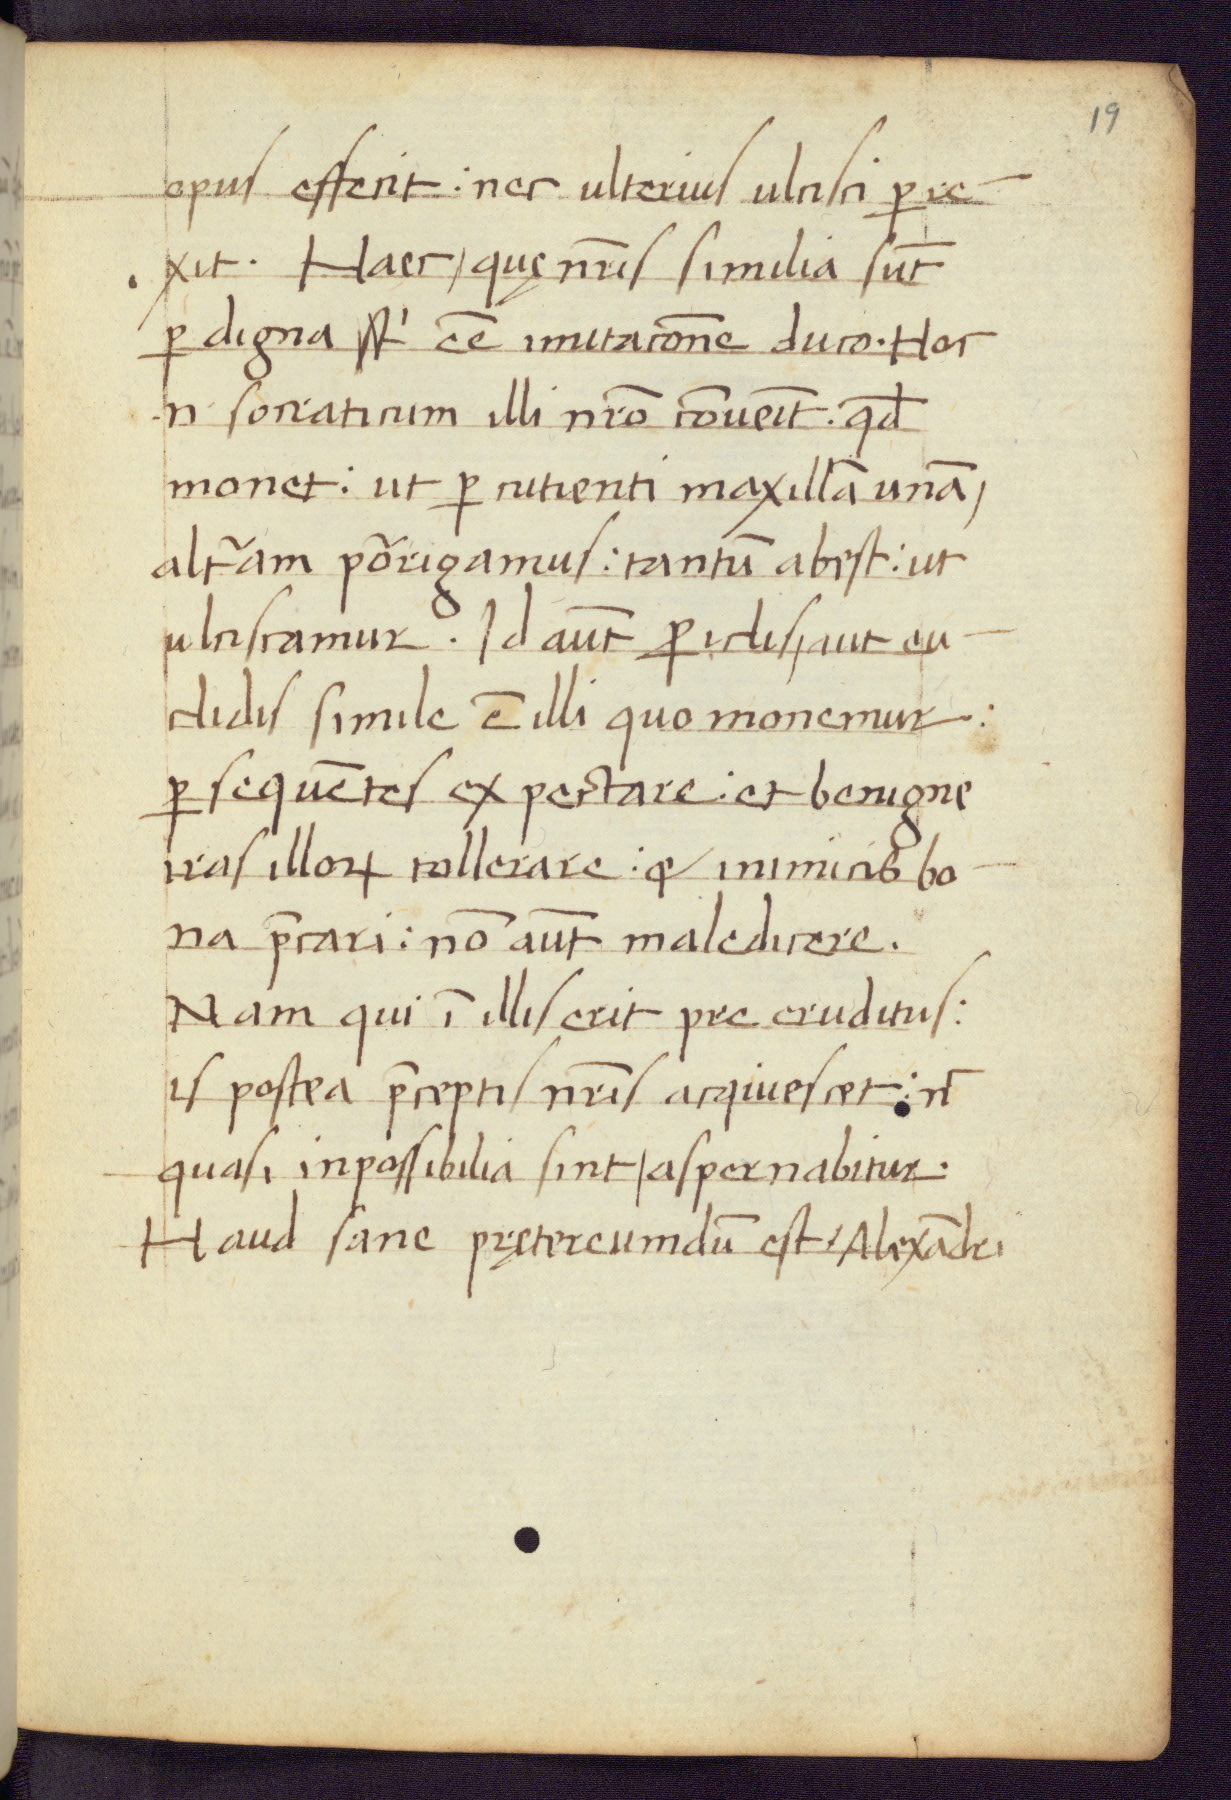 19
opus efferit : nec ulterius ulcisci ꝑre-
xit. Haec, quę nr̄is similia sūt
ꝑ digna eē imitacōne duco. Hoc
n socraticum illi nr̄o cōueīt. qd̄
monet : ut ꝑ cutienti maxillā unā,
altr̄am pōrigamus : tantū abest : ut
ulciscamur. Id aūt ꝑiclis, aut eu-
clidis simile ē illi quo monemur :
ꝑ sequētes expectare : et benigne
iras illoꝝ tollerare : & inimicis bo-
na p̄cari : nō aūt maledicere.
Nam qui ī illis erit preeruditus :
is postea p̄ceptis nr̄is acqiuescet : n̄
quasi inpossibilia sint, aspernabitur.
Haud sane prętereumdū est, Alexādri